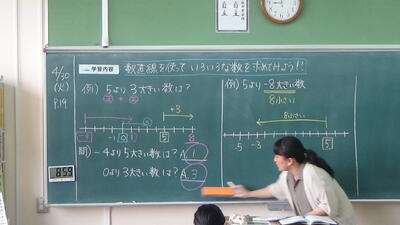 4/30
(火)
P.19
学習内容
数直線を使って いろいろな数を求めてみよう!!
例) 5より 3大きい数は?
例) 5より -8大きい数
8小さい
+3
8小さい
-1 0 1 5 8
-5 -3 5
問) -4より 5大きい数は? A. 1
0より 3大きい数は? A. 3
8:59